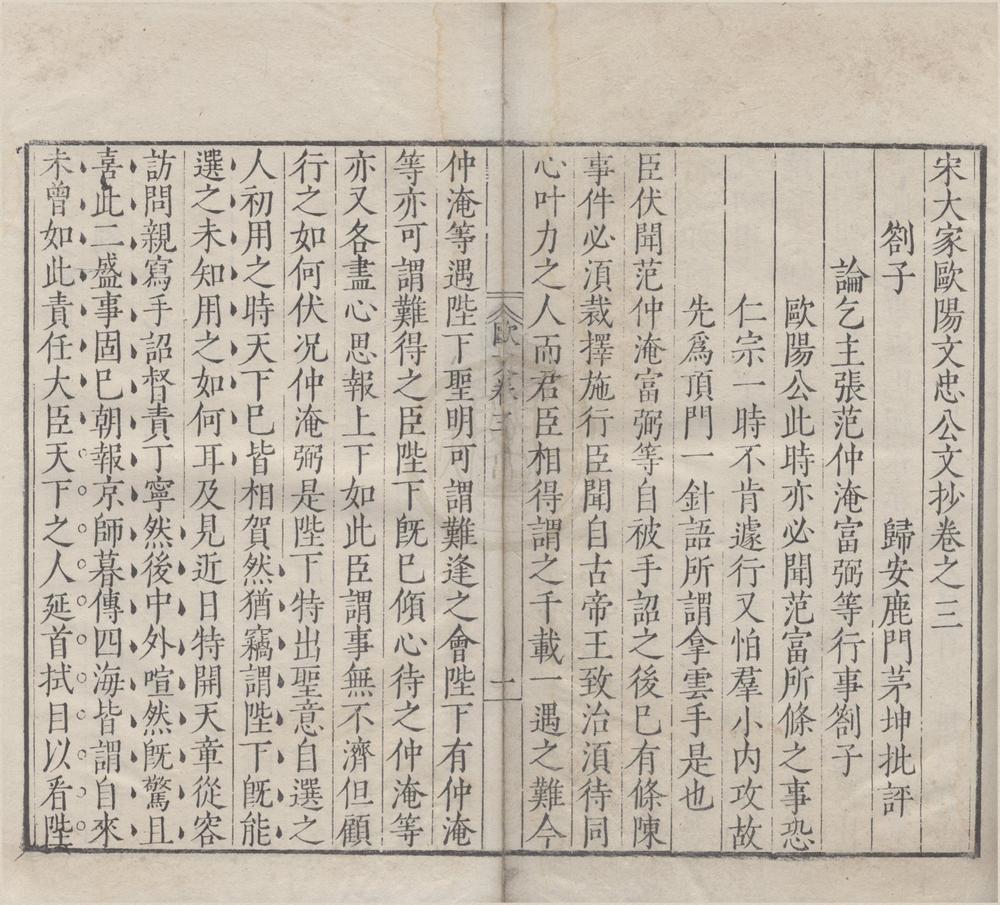 宋大家歐陽文忠公文抄卷之三
劄子
歸安鹿門茅坤批評
論乞主張范仲淹富弼等行事劄子
歐陽公此時亦必聞范富所條之事恐
仁宗一時不肯遽行又怕羣小內攻故
先爲頂門一針語所謂拿雲手是也
臣伏聞范仲淹富弼等自被手詔之後已有條陳
事件必須裁擇施行臣聞自古帝王致治須待同
心叶力之人而君臣相得謂之千載一遇之難今
歐文卷三
一
仲淹等遇陛下聖明可謂難逢之會陛下有仲淹
等亦可謂難得之臣陛下旣已傾心待之仲淹等
亦又各盡心思報上下如此臣謂事無不濟但顧
行之如何伏况仲淹弼是陛下特出聖意自選之
人初用之時天下已皆相賀然猶竊謂陛下旣能
選之未知用之如何耳及見近日特開天章從容
訪問親寫手詔督責丁寧然後中外喧然旣驚且
喜此二盛事固已朝報京師暮傳四海皆謂自來
未曾如此責任大臣天下之人延首拭目以看陛